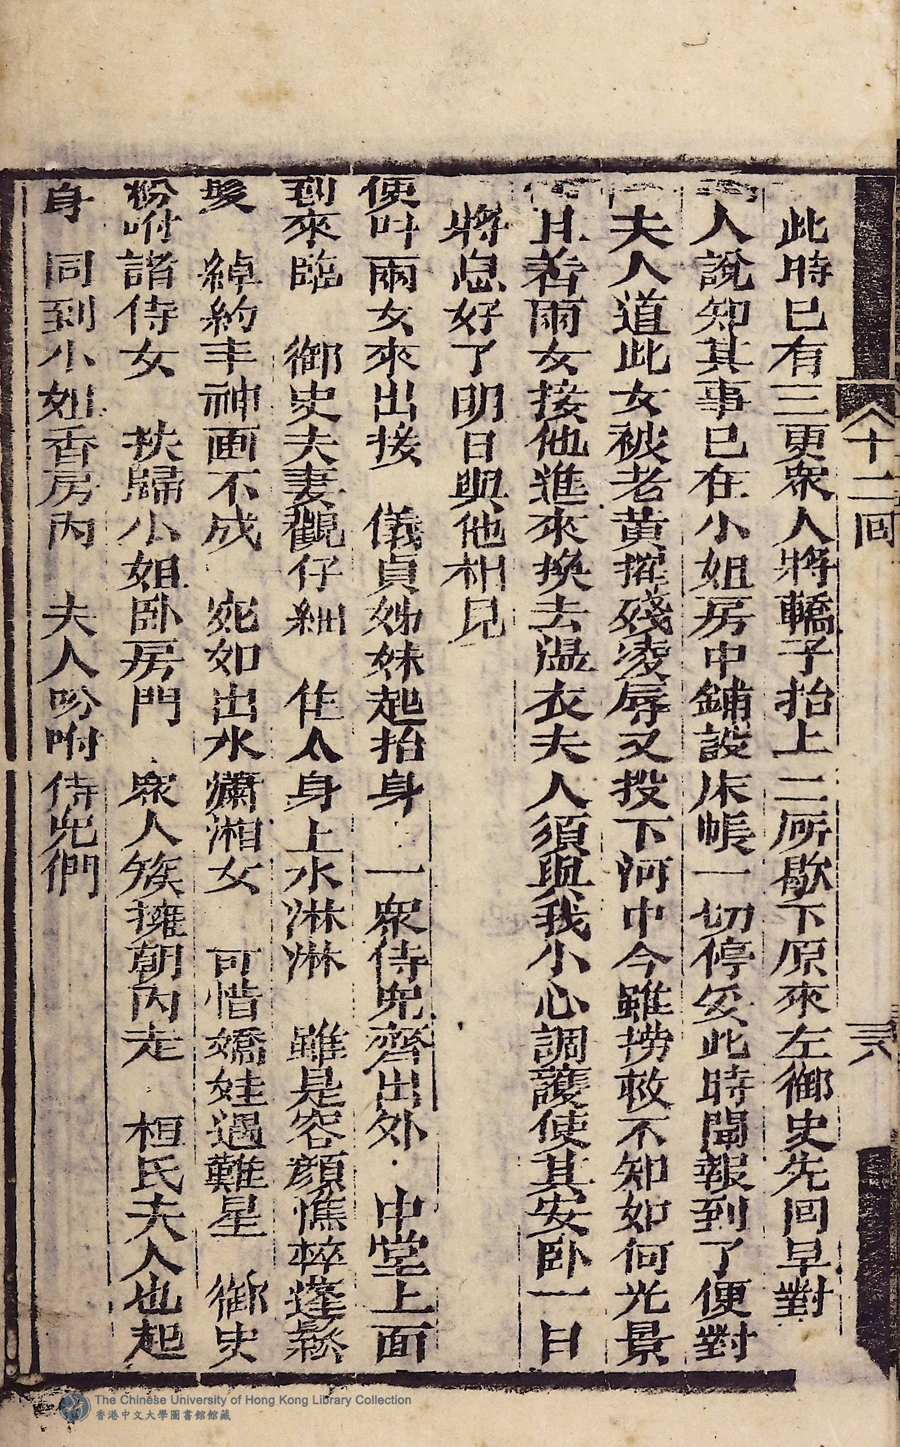 十二回
三八
此時已有三更衆人將轎子抬上二𠩄歇下原來左御史先回早對
人說知其事已在小姐房中鋪設床帳一切停妥此時聞報到了便對
夫人道此女被老黃摧殘凌辱又投下河中今雖撈救不知如何光景
且着兩女接他進來換去濕衣夫人須與我小心調護使其安卧一日
將息好了明日與他相見
使叫兩女來出接 儀貞姊妹起抬身 一衆侍兒齊出外 中堂上面
到來臨 御史夫妻觀仔細 佳人身上水淋淋 雖是容顔憔悴蓬鬆
髮 綽約丰神画不成 宛如出水瀟湘女 可惜嬌娃遇難星 御史
吩咐諸侍女 扶歸小姐卧房門 衆人簇擁朝內走 桓氏夫人也起
身 同到小姐香房內 夫人吩咐侍兒們
The Chinese University of Hong Kong Library Collection
香港中文大學圖書館館藏